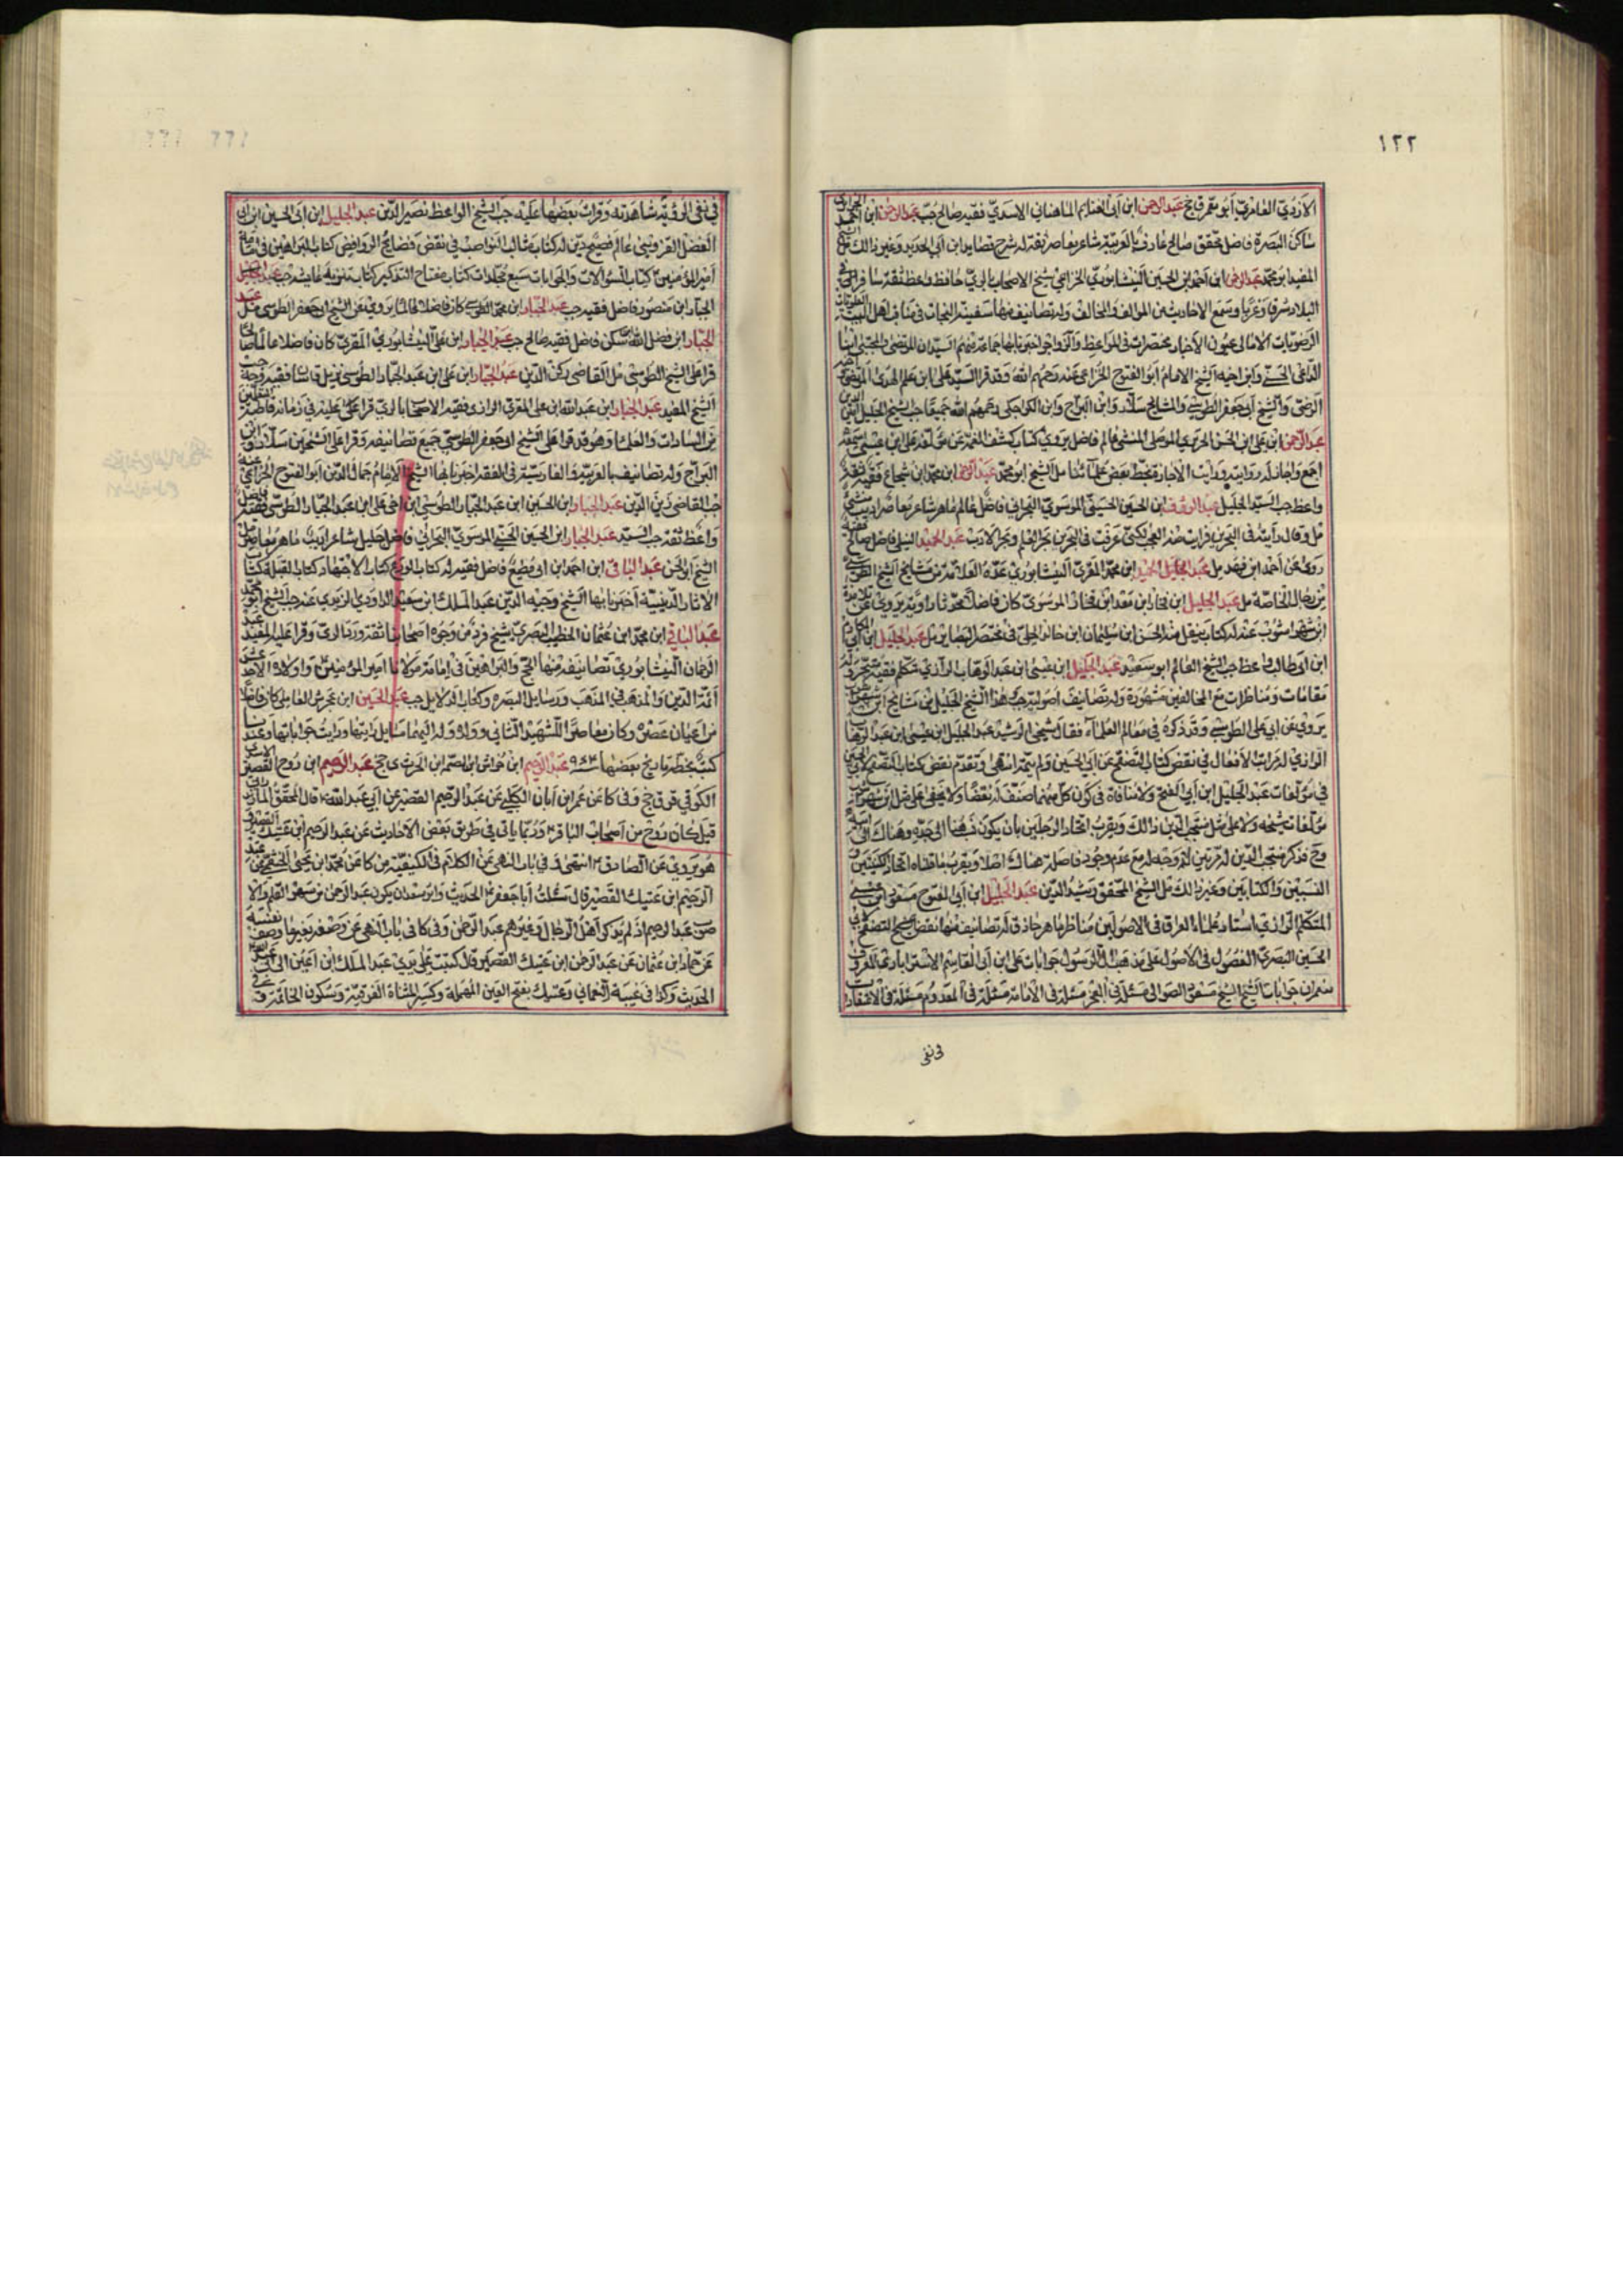 ١٢٢
الازدي الغامري أبو معمر ق جخ عبد الرحمن ابن أبي الغنايم الماهاني الاسدي فقيه صالح جب عبد الرحمن ابن أحمد
ساكن البصرة فاضل محقق صالح عارف بالعربية شاعر معاصر ثقة له شرح قصايد ابن أبي الحديد وغير ذالك مل الشيخ
المفيد ابو محمد عبد الرحمن ابن أحمد ابن الحسين النيشابوري الخزاعي شيخ الاصحاب بالري حافظ واعظ ثقة سافر في
البلاد شرقا وغربا وسمع الاحاديث من المؤالف والمخالف وله تصانيف منها سفينة النجات في مناقب اهل البيت
الرضويات الامالي عيون الأخبار مختصرات في المواعظ والزواجر اخبرنا بها جماعة منهم السيدان المرتضى والمجتبى ابنا
الداعي الحسني وابن اخيه الشيخ الامام أبو الفتوح الخزاعي عنه رحمهم الله وقد قرا السيد على ابن علم الهدى المرتضى
الرضي والشيخ أبي جعفر الطوسي والمشايخ سلار وابن البراج وابن الكراجكي رحمهم الله جميعا جب الشيخ الجليل
عبد الرحمن ابن علي ابن الحسن الجزيري الموصلي المنشي عالم فاضل يروي كتاب كشف الغمة عن مؤلفه علي ابن عيسى سمعه
اجمع واجاز له روايته ورايت الاجازة بخط بعض علمائنا مل الشيخ ابو محمد ابن محمد ابن شجاع فقيه ثقة
واعظ جب السيد الجليل عبد الرؤف ابن الحسين الحسيني الموسوي البحراني فاضل عالم ماهر شاعر معاصر اديب منشي
مل وقال رأيته في البحرين فرايت منه العجب لكني عرفت في البحرين بحر العلم وبحر الادب عبد الحميد النيلي فاضل صالح
روى عن أحمد ابن فهد مل ابن محمد المقري النيشابوري عده العلامة من مشايخ الشيخ الطوسي
من رجال الخاصة مل عبد الحميد ابن فخار ابن معد ابن فخار الموسوي كان فاضلا محدثا راوية يروي عن تلامذة
ابن شهر اشوب عنه له كتاب ينقل منه الحسن ابن سليمان ابن خالد الحلي في مختصر البصاير مل عبد الجليل ابن أبي
ابن ابي طالب واعظ جب الشيخ العالم ابو سعيد عبد الجليل ابن عيسى ابن عبد الوهاب الرازي متكلم فقيه متبحر وله
مقامات ومناظرات مع المخالفين مشهورة وله تصانيف أصولية جب هذا الشيخ الجليل من مشايخ ابن شهر
يروي عن أبي علي الطوسي وقد ذكره في معالم العلماء فقال شيخي الرشيد عبد الجليل ابن عيسى ابن عبد الوهاب
الرازي له مراتب الافعال في نقض كتاب التصفح عن أبي الحسين ولم يتمه انتهى وتقدم نقض كتاب التصفح لابي الحسين
في مؤلفات عبد الجليل ابن أبي الفتح ولا منافاة في كون كل منهما صنف له نقضا ولا يخفى على مثل ابن شهر
مؤلفات شيخه ولا على مثل منتجب الدين ذالك ويقرب اتحاد الرجلين بان يكون نسب هنا الى جده وهناك الى
وح فذكر منتجب الدين له مرتين لا وجه له مع عدم وجود فاصلة هناك اصلا ويقرب ما قلناه اتحاد الكنيتين و
النسبتين والكتابين وغير ذالك مل الشيخ المحقق رشيد الدين عبد الجليل ابن أبي الفتوح مسعود ابن عيسى
المتكلم الرازي استاد علماء العراق في الاصولين مناظر ماهر حاذق له تصانيف منها نقض التصفح لابي
الحسين البصري الفصول في الاصول على مذهب آل الرسول جوابات علي ابن أبي القاسم الاسترابادي المعروف
جوابات الشيخ مسعود الصوابي مسئلة في المعجز مسئلة في الامامة مسئلة في المعدوم مسئلة في الاعتقاد
في نفي
في نفي الرؤية شاهدته وقرات بعضها عليه جب الشيخ الواعظ نصير الدين عبد الجليل ابن أبي الحسين ابن أبي
الفضل القزويني عالم فصيح دين له كتاب مثالب النواصب في نقض فضايح الروافض كتاب البراهين في امامة
أمير المؤمنين كتاب السؤالات والجوابات سبع مجلدات كتاب مفتاح التذكير كتاب تنزيه عايشة جب عبد
الجبار ابن منصور فاضل فقيه جب عبد الجبار ابن محمد الطوسي كان فاضلا عالما يروي عن الشيخ ابي جعفر الطوسي مل عبد
الجبار ابن فضل الله فاضل فقيه صالح جب عبد الجبار ابن علي النيشابوري المقري كان فاضلا عالما صالحا
قرا على الشيخ الطوسي مل القاضي ركن الدين عبد الجبار ابن علي ابن عبد الجبار الطوسي نزيل قاشان فقيه وجه جب
الشيخ المفيد عبد الجبار ابن عبد الله ابن علي المقري الرازي فقيه الاصحاب بالري قرا عليه في زمانه قاطبة المتعلمين
من السادات والعلماء وهو قد قرا على الشيخ ابي جعفر الطوسي جميع تصانيفه وقرا على الشيخين سلار وابن
البراج وله تصانيف بالعربية والفارسية في الفقه اخبرنا بها الشيخ الامام جمال الدين ابو الفتوح الخزاعي عنه
جب القاضي زين الدين عبد الجبار ابن الحسين ابن عبد الجبار الطوسي ابن اخي علي ابن عبد الجبار الطوسي فاضل فقيه
واعظ ثقة جب السيد عبد الجبار ابن الحسين الحسيني الموسوي البحراني فاضل جليل شاعر اديب ماهر معاصر مل
الشيخ أبو الحسن عبد الباقي ابن احمد ابن ابي مطيع فاضل فقيه له كتاب الورع كتاب الاجتهاد كتاب القبلة كتاب
الاثار الدينية أخبرنا بها الشيخ وجيه الدين عبد الملك ابن سعيد الداودي الزيدي عنه جب الشيخ ابو محمد
عبد الباقي ابن محمد ابن عثمان الخطيب البصري شيخ من وجوه اصحابنا ثقة ورد الري وقرا عليه المفيد عبد
الرحمان النيشابوري تصانيفه منها الحجج والبراهين في امامة مولانا أمير المؤمنين واولاده الاحد عشر
أئمة الدين والمذهب في المذهب ورسايل البصرة وكتاب الدلايل جب عبد الحسين ابن العاملي كان فاضلا
من اعيان عصره وكان معاصرا للشهيد الثاني وولده وله اليهما مسايل رايتها ورايت جواباتها وعندنا
كتب بخطه تاريخ بعضها ٩٤٣ عبد الرحيم ابن خواش ابن الصمة ابن الحرث ي جخ عبد الرحيم ابن روح القصير الاسدي
الكوفي قر ق جخ وفي كا عن عمر ابن ابان الكلبي عن عبد الرحيم القصير عن أبي عبد الله ع قال المحقق المازندراني
قيل كان روح من أصحاب الباقر ع وربما ياتي في طريق بعض الاحاديث عن عبد الرحيم ابن عتيك القصير
هو يروي عن الصادق ع انتهى في باب النهي عن الكلام في الكيفية من كا عن محمد ابن يحيى الخثعمي عن عبد
الرحيم ابن عتيك القصير قال سئلت أبا جعفر ع الحديث ولا يبعد ان يكون عبد الرحمن من سهو القلم والا
صوب عبد الرحيم اذ لم يذكروا أهل الرجال وغيرهم عبد الرحمن وفي كا في باب النهي عن وصفه بغير ما وصف نفسه
عن حماد ابن عثمان عن عبد الرحمن ابن عتيك القصير قال كتبت على يدي عبد الملك ابن أعين الى أبي عبد الله
الحديث وكذا في غيبة النعماني وعتيك بفتح العين المهملة وكسر المثناة الفوقية وسكون الخاتمة